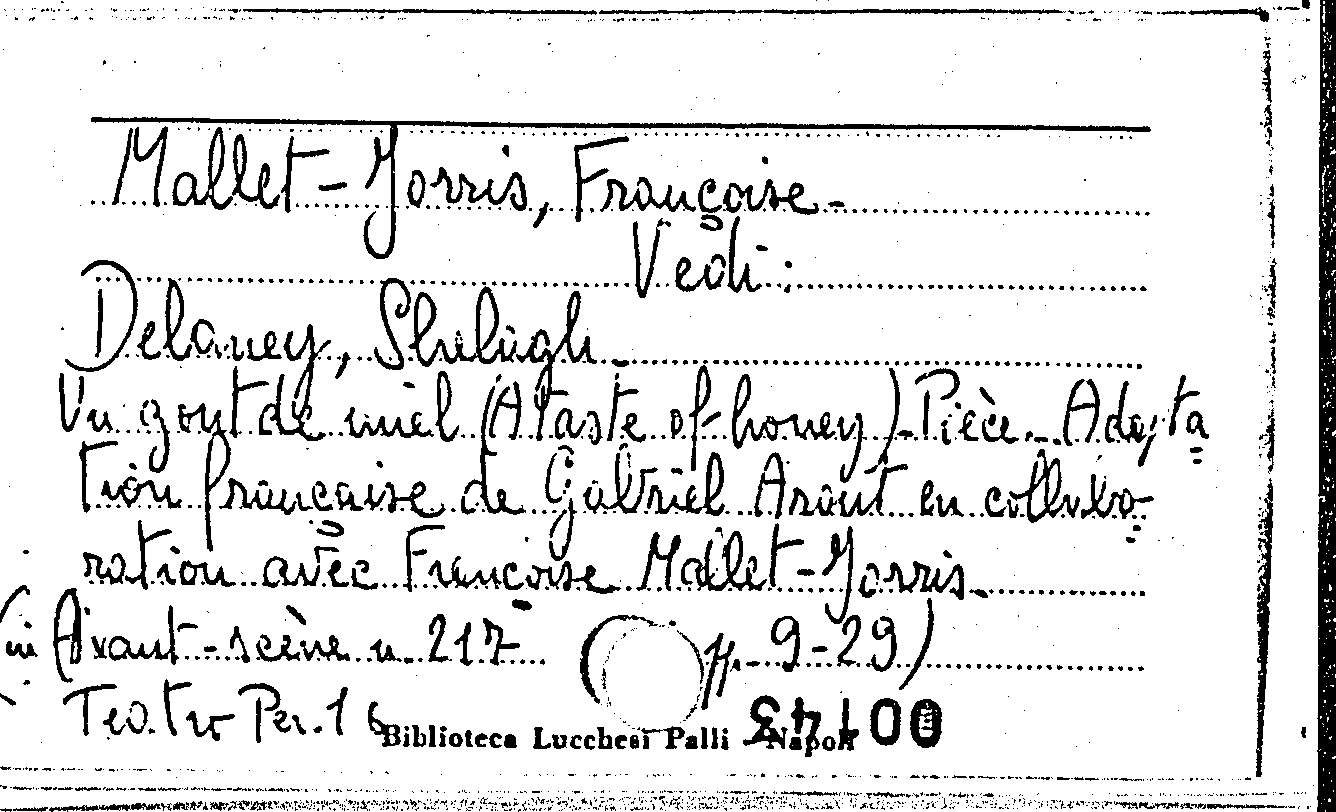 Mallet-Jorris, Françoise-
Vedi:
Delaney, Shelagh-
Un gout de miel (A taste of honey). Pièce. Adapta
tion française de Gabriel Arout en collabo-
ration avec Françoise Mallet-Jorris.
(in Avant-scène n. 217 pp. 9-29)
Teatro Per. 16
Biblioteca Lucchesi Palli - Napoli